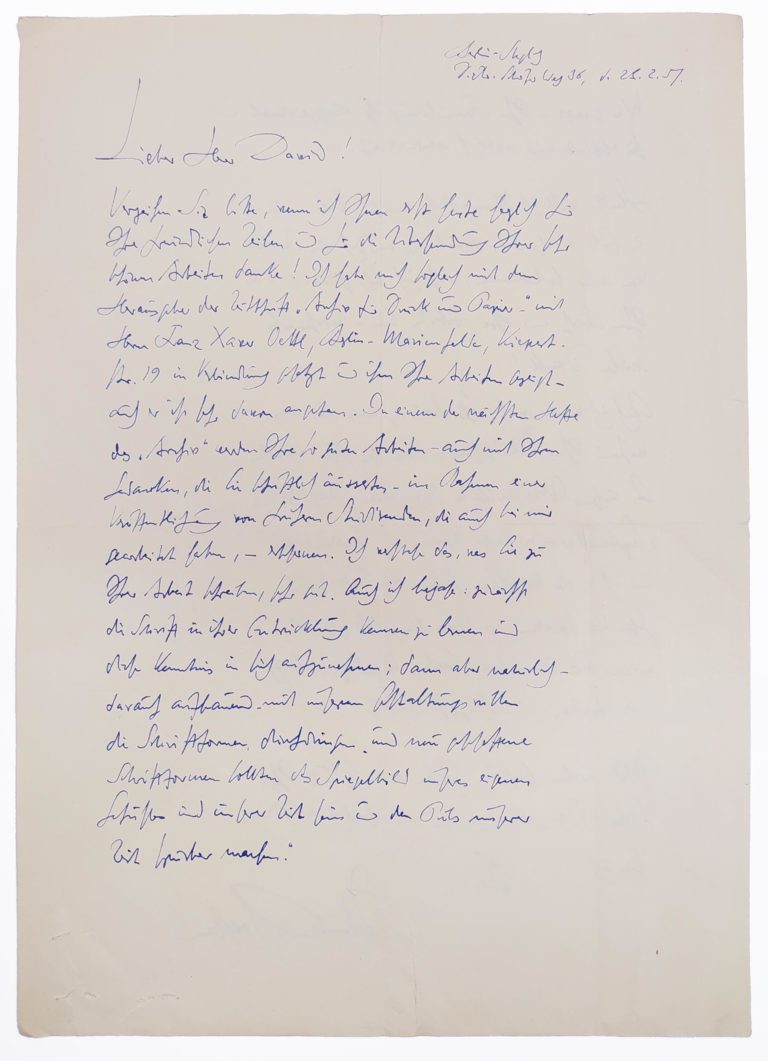 Berlin-Steglitz
36, d. 28.2.57.
Lieber Herr David!
Verzeihen Sie bitte, wenn ich Ihnen erst heute sogleich für
Ihre freundlichen Zeilen u für die Übersendung Ihrer sehr
schönen Arbeiten danke! Ich habe mich sogleich mit dem
Herausgeber der Zeitschrift „Archiv für Druck und Papier" mit
Herrn Franz Xaver Oettl, Berlin-Marienfelde, Kiepert-
str. 19 in Verbindung gesetzt u ihm Ihre Arbeiten gezeigt –
auch er ist sehr davon angetan. In einem der nächsten Hefte
des „Archiv" werden Ihre so guten Arbeiten – auch mit Ihren
Gedanken, die Sie schriftlich äusserten – im Rahmen einer
Veröffentlichung von früheren Studierenden, die auch bei mir
gearbeitet haben, – erscheinen. Ich verstehe das, was Sie zu
Ihrer Arbeit schreiben, sehr gut. Auch ich bejahe: zunächst
die Schrift in ihrer Entwicklung kennen zu lernen und
diese Kenntnis in sich aufzunehmen; dann aber natürlich –
darauf aufbauend – mit unserem Gestaltungswillen
die Schriftformen durchdringen und neu geschaffene
Schriftformen sollten das Spiegelbild unseres eigenen
Schaffens und unserer Zeit sein u den Puls unserer
Zeit spürbar machen."